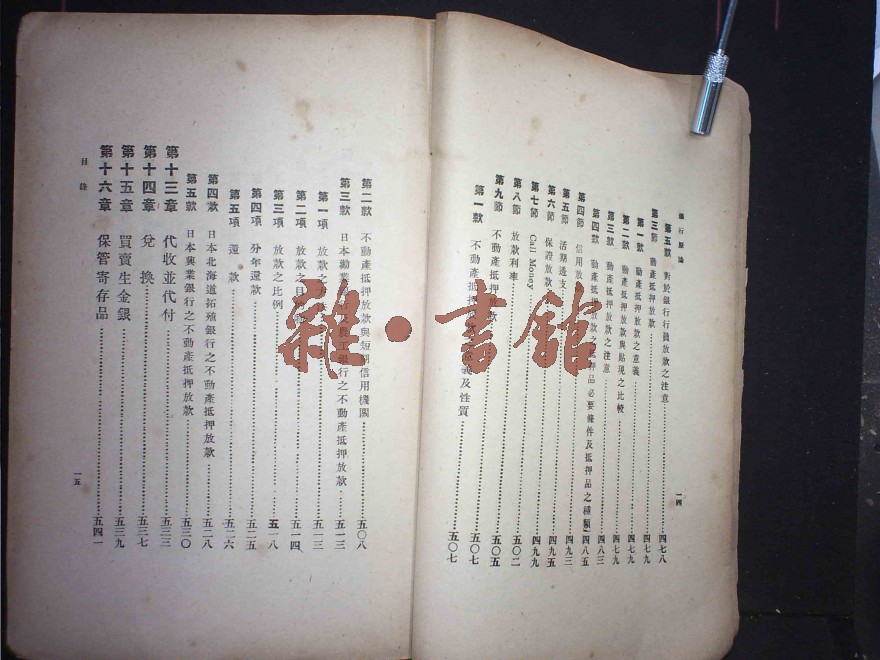 銀行原論
一四
第五款 對於銀行行員放款之注意 四七八
第三節 動產抵押放款 四七九
第一款 動產抵押放款之意義 四七九
第二款 動產抵押放款與貼現之比較 四七九
第三款 動產抵押放款之注意 四八三
第四款 動產抵押放款之抵押品必要條件及抵押品之種類 四八五
第四節 信用放 四九三
第五節 活期透支
第六節 保證放款 四九五
第七節 Call Money 四九九
第八節 放款利率 五〇二
第九節 不動產抵押放款 五〇五
第一款 不動產抵押放款之意義及性質 五〇七
第二款 不動產抵押放款與短期信用機關 五〇八
第三款 日本勸業銀行及農工銀行之不動產抵押放款 五一三
第一項 放款之 五一三
第二項 放款之目的 五一四
第三項 放款之比例 五一八
第四項 分年還款 五二五
第五項 還款 五二六
第四款 日本北海道拓殖銀行之不動產抵押放款 五二八
第五款 日本興業銀行之不動產抵押放款 五三〇
第十三章 代收並代付 五三三
第十四章 兌換 五三七
第十五章 買賣生金銀 五三九
第十六章 保管寄存品 五四一
目錄
一五
雜·書館